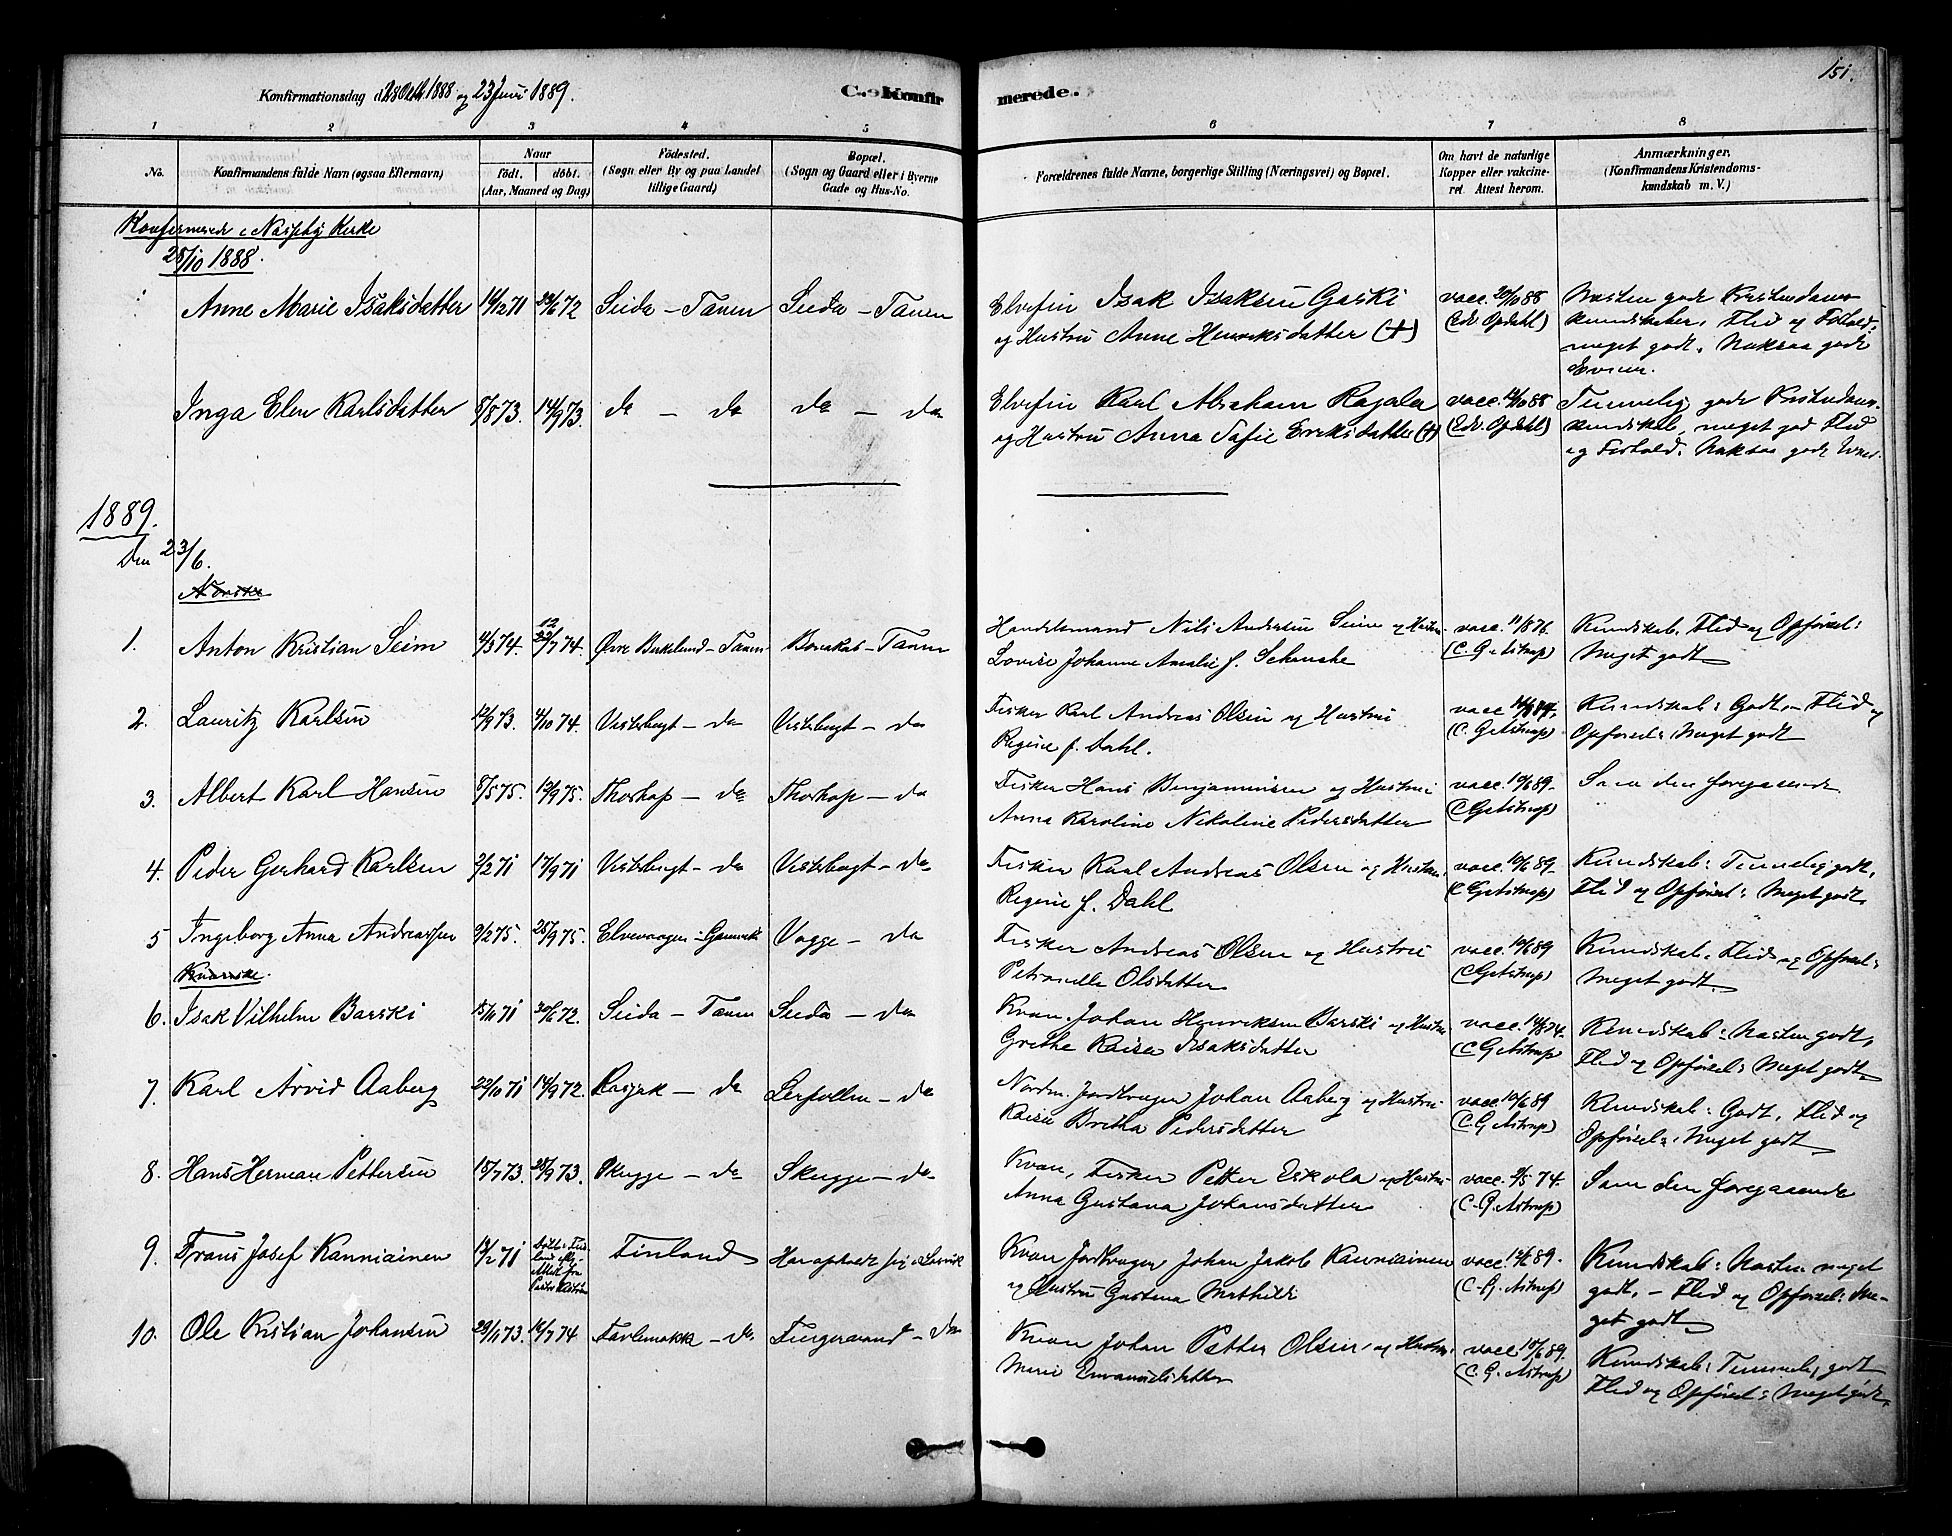 151.
Konfirmationsdag d. 28 Okt 1888 og 23 Juni 1889.
C. Konfirmerede.
1 2 3 4 5 6 7 8
No.
Konfirmandens fulde Navn (ogsaa Efternavn)
Naar
födt. döbt.
(Aar, Maaned og Dag)
Födested.
(Sogn eller By og paa Landet
tillige Gaard)
Bopæl.
(Sogn og Gaard eller i Byerne
Gade og Hus-No.
Forældrenes fulde Navne, borgerlige Stilling (Næringsvei) og Bopæl.
Om havt de naturlige
Kopper eller vakcine-
ret. Attest herom.
Anmærkninger.
(Konfirmandens Kristendoms-
kundskab m. V.)
Konfirmerede i Næsseby Kirke
28/10 1888.
Anne Marie Isaksdatter 16/12 71 23/6 72 Seida - Tanen Seida - Tanen Elvefin Isak Isaksen Gaski vacc. 20/10 88 Næsten gode Kristendoms-
og Hustru Anne Henriksdatter (+) (Edv Opdahl) kundskaber. Flid og Forhold
meget godt. Noksaa gode
Evner.
Inga Elen Karlsdatter 8/8 73. 14/9 73. do - do do - do Elvefin Karl Abraham Rajala vacc. 12/10 88 Temmelig gode Kristendoms-
og Hustru Anna Sofie Eriksdatter (+) (Edv. Opdahl) kundskab, meget god Flid
og Forhold. Noksaa gode Evner.
1889.
den 23/6.
Norske
1. Anton Kristian Seim 4/3 74. 12/7 74. Øvre Birkelund - Tanen Bonakas - Tanen Handelsmand Nils Andersen Seim og Hustru vacc. 11/8 76. Kundskab. Flid og Opførsel:
Lovise Johanne Amalie f. Schanche (C. G. Astrup) Meget godt
2. Lauritz Karlsen 12/9 73. 4/10 74. Vestebugt - do Vestebugt - do Fisker Karl Andreas Olsen og Hustru vacc. Kundskab: Godt, - Flid og
Regine f. Dahl. (C. G. Astrup) Opførsel: Meget godt
3. Albert Karl Hansen 8/5 75. 12/9 75. Thorhop - do Thorhop - do Fisker Hans Benjaminsen og Hustru vacc. 10/6 89. Som den foregaaende
Anna Karoline Nikoline Pedersdatter (C G Astrup)
4. Peder Gerhard Karlsen 2/2 71 17/9 71 Vestebugt - do Vestebugt - do Fisker Karl Andreas Olsen og Hustru vacc. 10/6 89. Kundskab: Temmelig godt,
Regine f. Dahl (C G Astrup) Flid og Opførsel: Meget godt.
5 Ingeborg Anna Andreassen 9/2 75. 25/9 75. Elvevaagen i Gamvik Vagge - do Fisker Andreas Olsen og Hustru vacc. 10/6 89 Kundskab. Flid og Opførsel:
Petronelle Olsdatter (C G Astrup) Meget godt
Kvænske.
6. Isak Vilhelm Barski 15/11 71 30/6 72. Seida - Tanen Seida - do Kvæn. Johan Henriksen Barski og Hustru vacc. 14/8 74. Kundskab: Næsten godt,
Grethe Kaisa Isaksdatter (C G Astrup) Flid og Opførsel: Meget godt
7. Karl Arvid Aaberg 22/10 71 14/9 72. do Leirpollen - do Nordm. Jordbruger Johan Aaberg og Hustru vacc. 10/6 89 Kundskab: Godt, Flid og
Kaisa Britha Pedersdatter (C. G. Astrup) Opførsel: Meget godt
8. Hans Herman Pettersen 18/7 73. 28/9 73. Skugge - do Skugge - do Kvæn, Fisker Petter Eskola og Hustru vacc. 9/5 74. Som den foregaaende
Anna Gustava Johansdatter (C. G. Astrup)
9. Frans Josef Kanniainen 14/2 71 døbt i Finland Finland Kvæn Jordbruger Johan Jakob Kanniainen vacc. 12/6 89. Kundskab: Næsten meget
og Hustru Gustava Mathilde (C. G. Astrup) godt. - Flid og Opførsel: Me-
get godt
10. Ole Kristian Johansen 29/11 73. 16/7 74 - do - do Kvæn Johan Petter Olsen og Hustru vacc. 15/6 89. Kundskab: Temmelig godt
Marie Emanuelsdatter (C. G. Astrup) Flid og Opførsel: Meget godt.